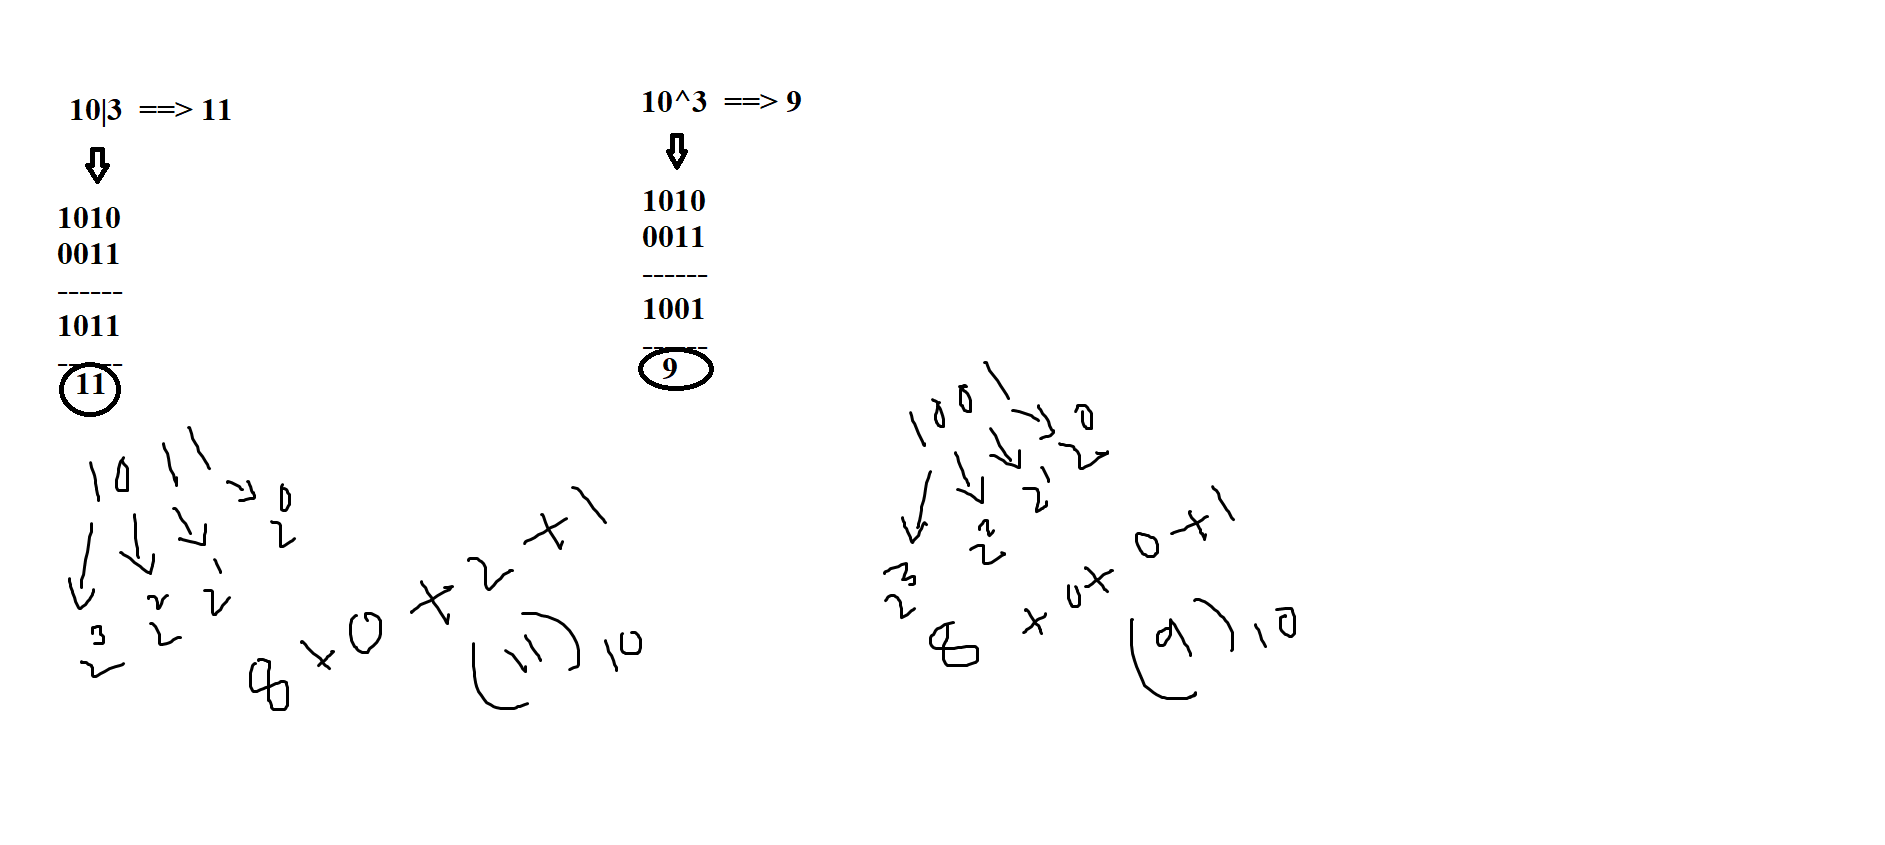 10|3 ==> 11
1010
0011
------
1011
------
11
1 0 1 1
2^3 2^2 2^1 2^0
8 + 0 + 2 + 1
(11)10
10^3 ==> 9
1010
0011
------
1001
------
9
1 0 0 1
2^3 2^2 2^1 2^0
8 + 0 + 0 + 1
(9)10